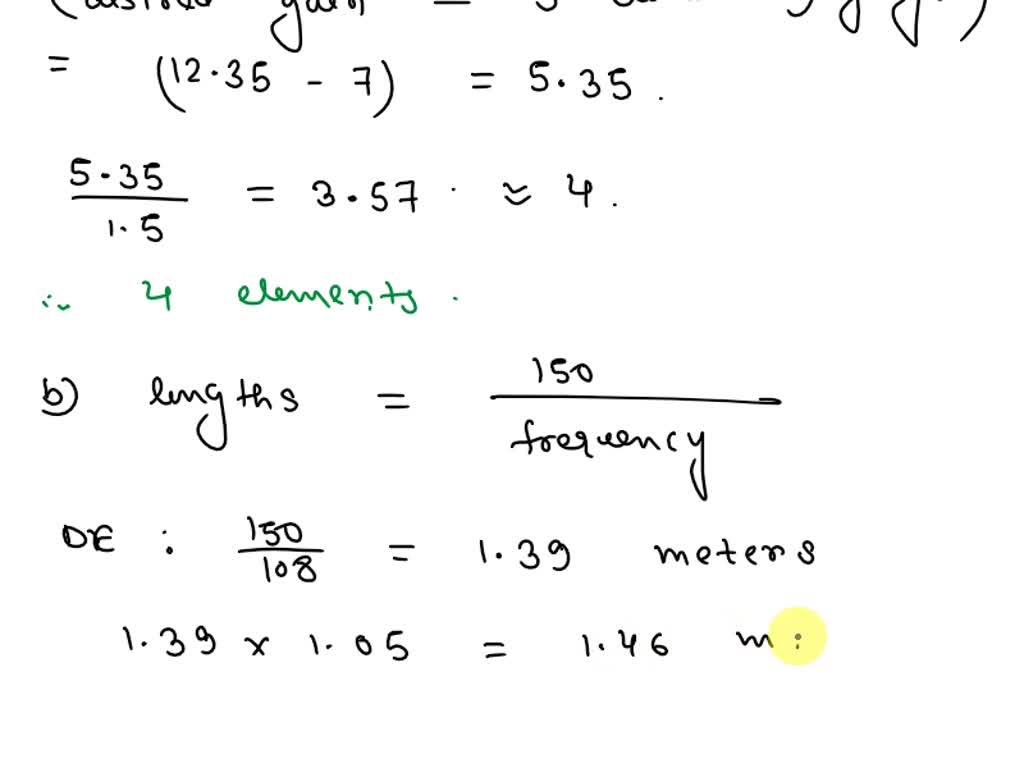 = (12.35 - 7) = 5.35.
5.35/1.5 = 3.57 ≈ 4.
∴ 4 elements.
b) lengths = 150/frequency
DE : 150/108 = 1.39 meters
1.39 x 1.05 = 1.46 m